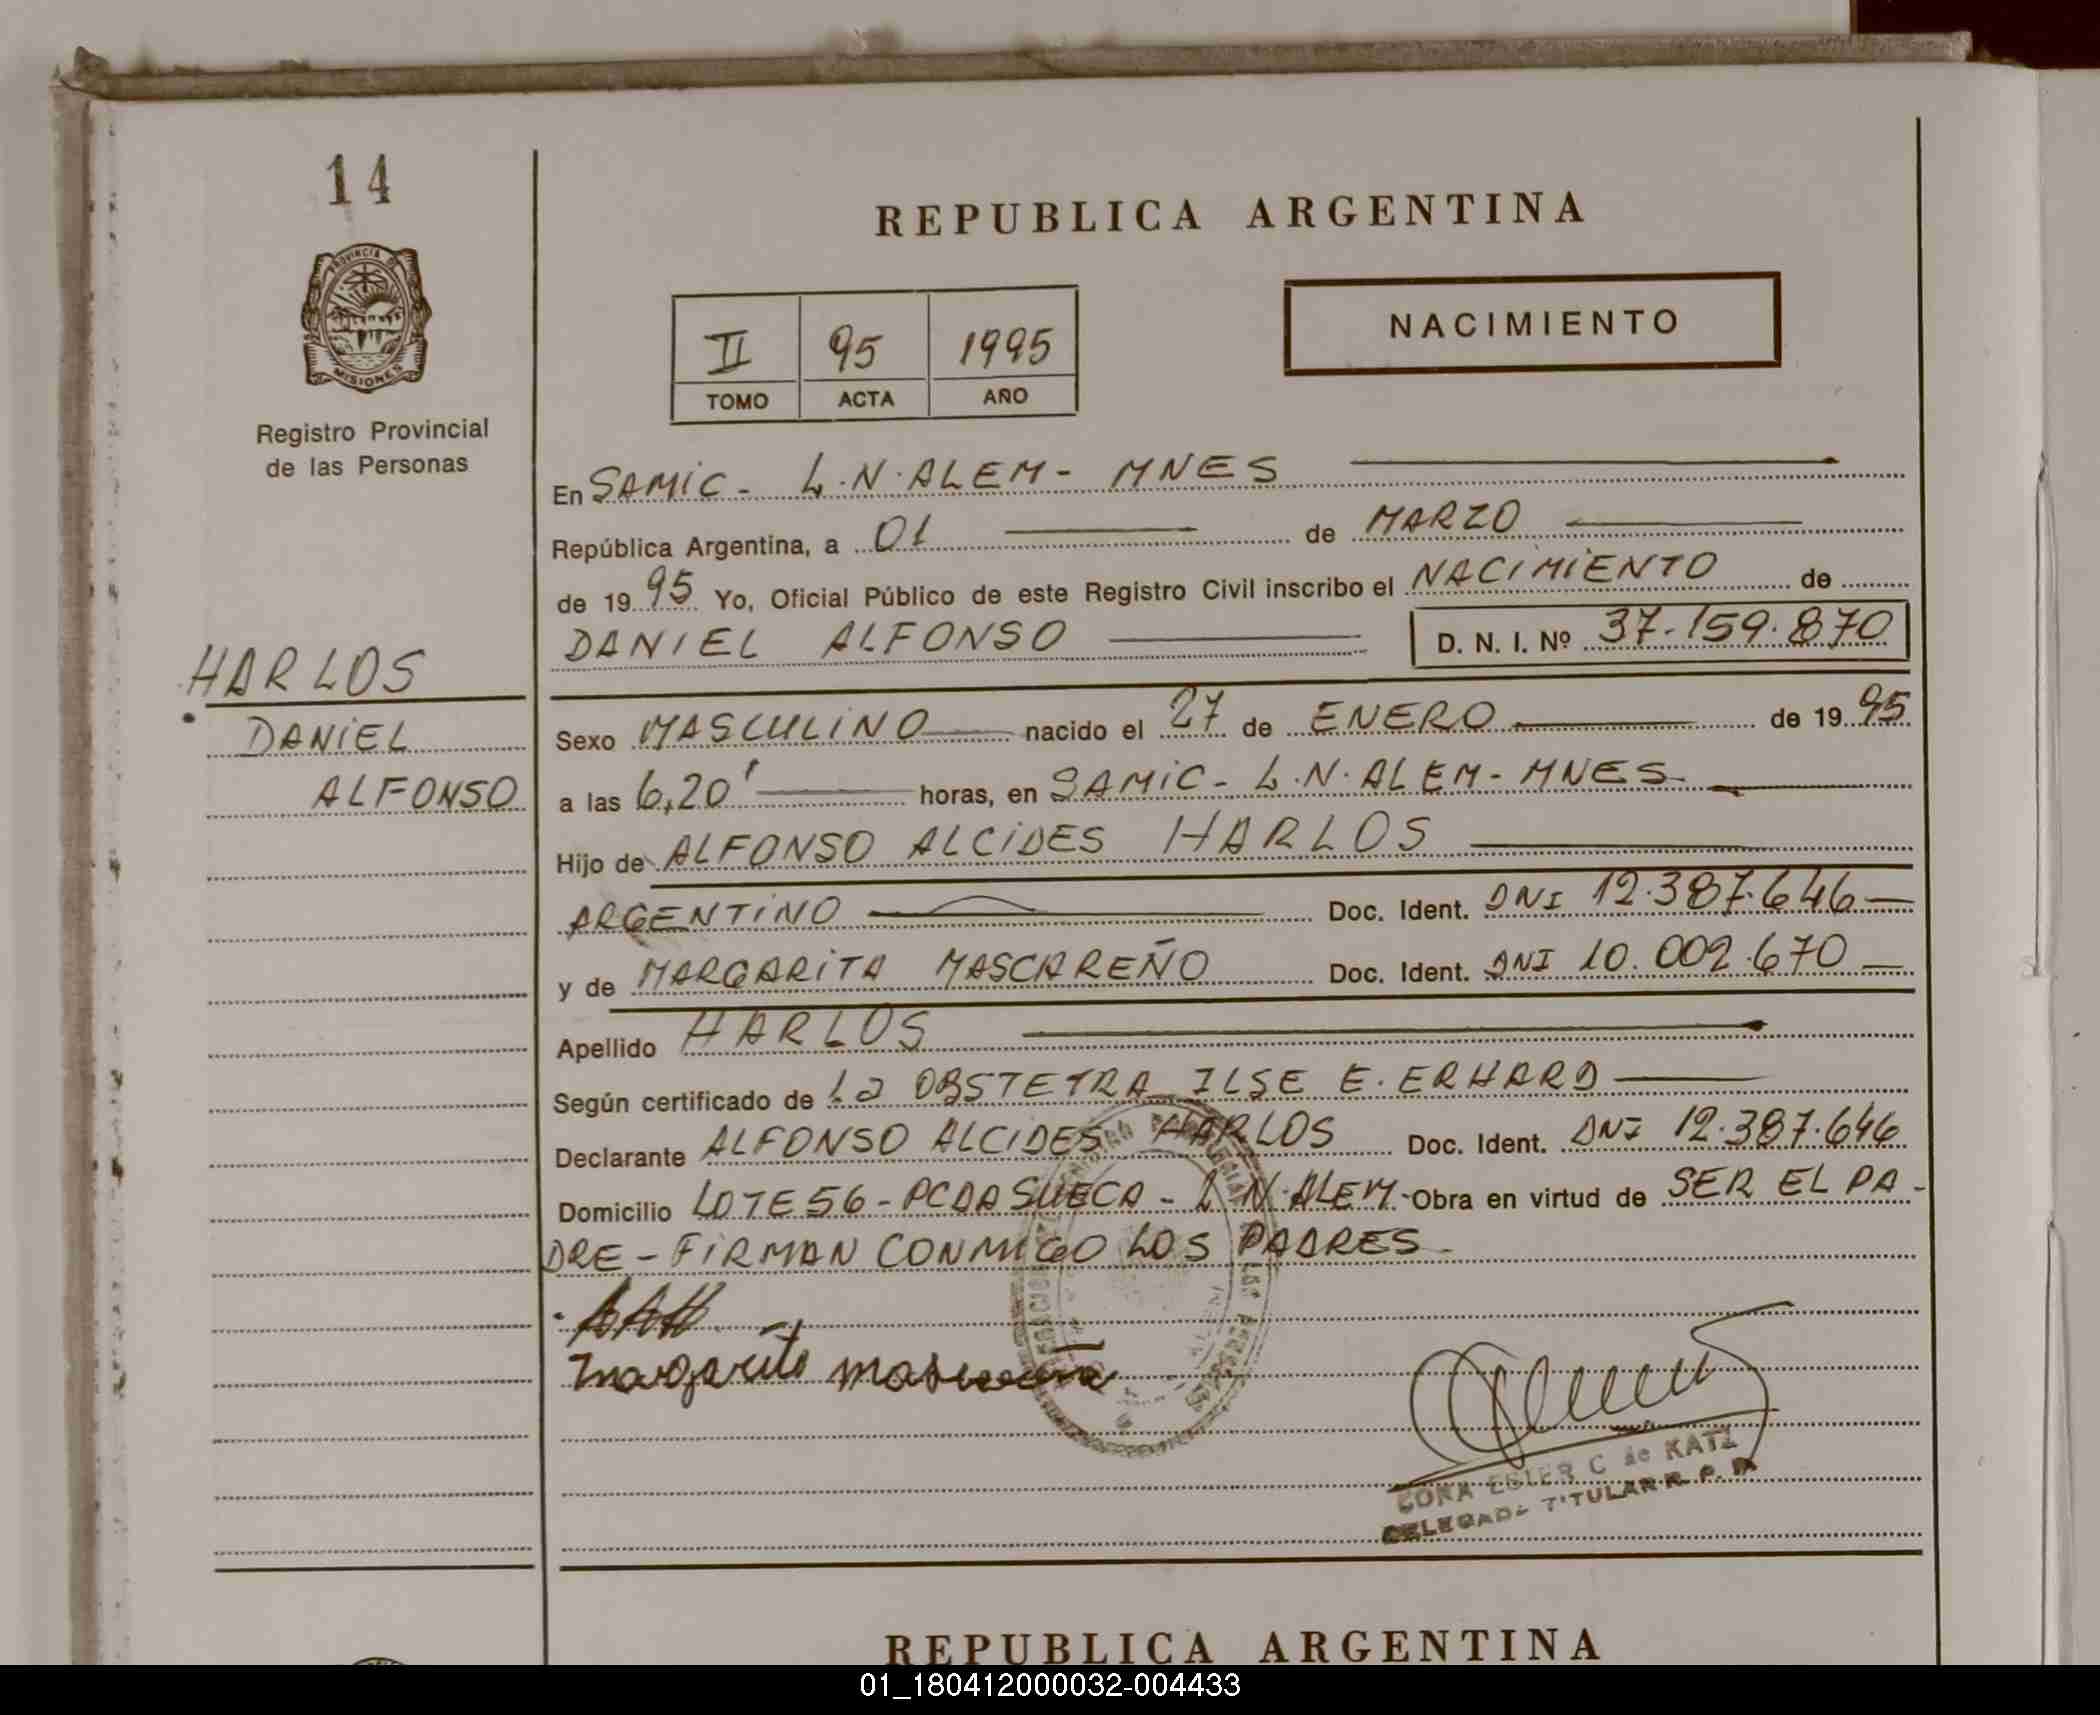 14
PROVINCIA DE
MISIONES
Registro Provincial
de las Personas
HARLOS
DANIEL
ALFONSO
REPUBLICA ARGENTINA
II 95 1995
TOMO ACTA AÑO
NACIMIENTO
En SAMIC - L.N. ALEM - MNES
República Argentina, a 01 de MARZO
de 1995 Yo, Oficial Público de este Registro Civil inscribo el NACIMIENTO de
DANIEL ALFONSO D. N. I. Nº 37.159.870
Sexo MASCULINO nacido el 27 de ENERO de 1995
a las 6,20' horas, en SAMIC - L.N. ALEM - MNES -
Hijo de ALFONSO ALCIDES HARLOS
ARGENTINO Doc. Ident. DNI 12.387.646 —
y de MARGARITA MASCAREÑO Doc. Ident. DNI 10.002.670 —
Apellido HARLOS
Según certificado de La OBSTETRA ILSE E. ERHARD
Declarante ALFONSO ALCIDES HARLOS Doc. Ident. DNI 12.387.646
Domicilio LOTE 56 - PCDA SUECA - L.N. ALEM - Obra en virtud de SER EL PA-
DRE - FIRMAN CONMIGO LOS PADRES -
AAH
Margarita
ESTER C de KATZ
TITULAR R. P.
REPUBLICA ARGENTINA
01_180412000032-004433